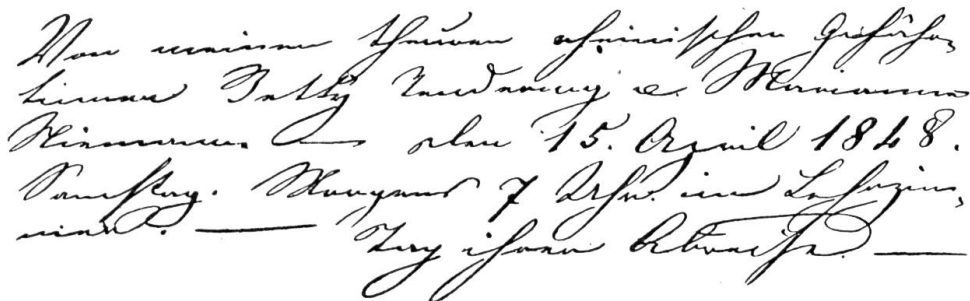 Von meinen theuren rheinischen Gefähr-
tinnen Betty Tendering u. Marianne
Niemann. — den 15. April 1848.
Samstag. Morgens 7 Uhr. im Lesezim-
mer. — Tag ihrer Abreise. —